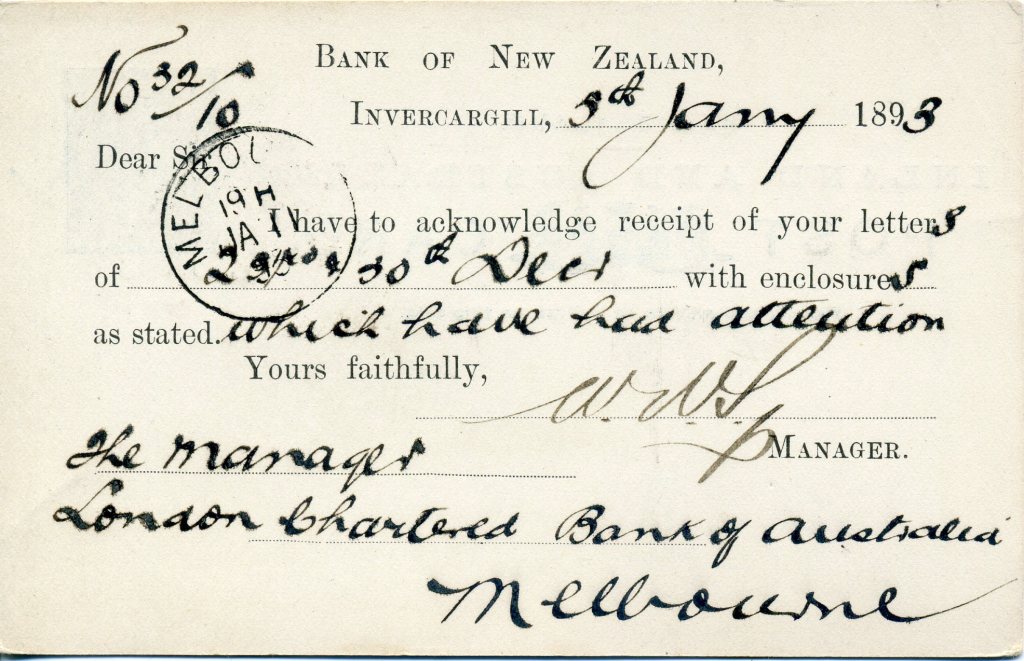 No 32/10
BANK OF NEW ZEALAND,
INVERCARGILL, 5th Jany 1893
Dear Sir
MELBOU
19 H
JA 11
I have to acknowledge receipt of your letters
of 22nd & 30th Decr with enclosures
as stated. which have had attention
Yours faithfully,
MANAGER.
The Manager
London Chartered Bank of Australia
Melbourne